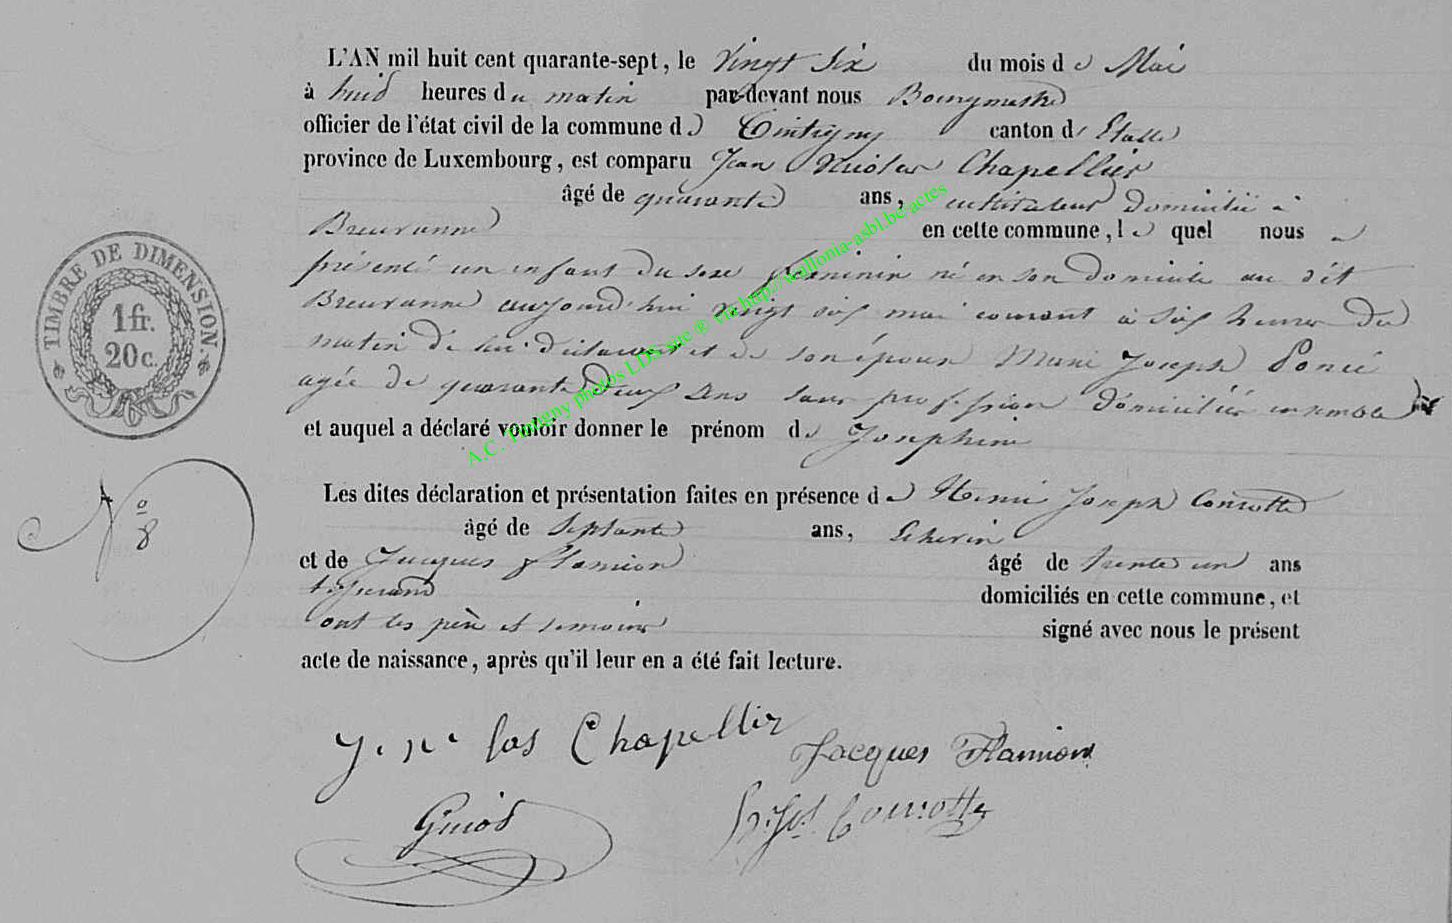 L'AN mil huit cent quarante-sept, le Vingt Six du mois de Mai
à huid heures du matin par-devant nous Bourgmestre
officier de l'état civil de la commune de Tintigny canton d' Etalle
province de Luxembourg, est comparu Jean Nicolas Chapellier
âgé de quarante ans, cultivateur domicilié à
Breuvanne en cette commune, le quel nous a
présenté un enfant du sexe féminin né en son domicile au dit
Breuvanne aujourd'hui vingt six mai courant à six heures du
matin de lui déclarant et de son épouse Marie Joseph Poncé
agée de quarante deux ans sans profession domiciliés ensemble
et auquel a déclaré vouloir donner le prénom de Josephine
Les dites déclaration et présentation faites en présence de Henri Joseph Conrotte
âgé de septante ans, Echevin
et de Jacques Flamion âgé de trente un ans
tisserand domiciliés en cette commune, et
ont les père et témoins signé avec nous le présent
acte de naissance, après qu'il leur en a été fait lecture.
TIMBRE DE DIMENSION.
1 fr.
20 c.
N° 8
J. N. las Chapellier
Jacques Flamion
Guiot
h. Jos. Conrotte
A.C. Tintigny photos LDS site ® via http://wallonia-asbl.be/actes